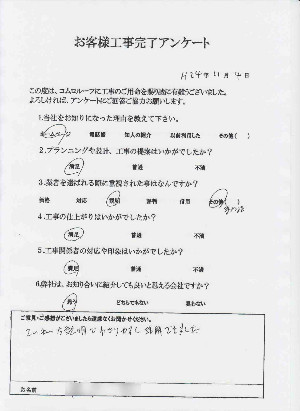 お客様工事完了アンケート
H24年11月4日
この度は、コムロルーフに工事のご用命を賜り誠に有難うございました。
よろしければ、アンケートにご回答ご協力お願いします。
1.当社をお知りになった理由を教えて下さい。
ホームページ 電話帳 知人の紹介 以前利用した その他( )
2.プランニングや設計、工事の提案はいかがでしたか?
満足 普通 不満
3.業者を選ばれる際に重視された事はなんですか?
価格 対応 説明 評判 信用 その他( )
4.工事の仕上がりはいかがでしたか?
満足 普通 不満
5.工事関係者の対応や印象はいかがでしたか?
満足 普通 不満
6.弊社は、お知り合いに紹介しても良いと思える会社ですか?
思う どちらでもない 思わない
ご意見・ご感想がございましたら遠慮なくお聞かせください。
お名前